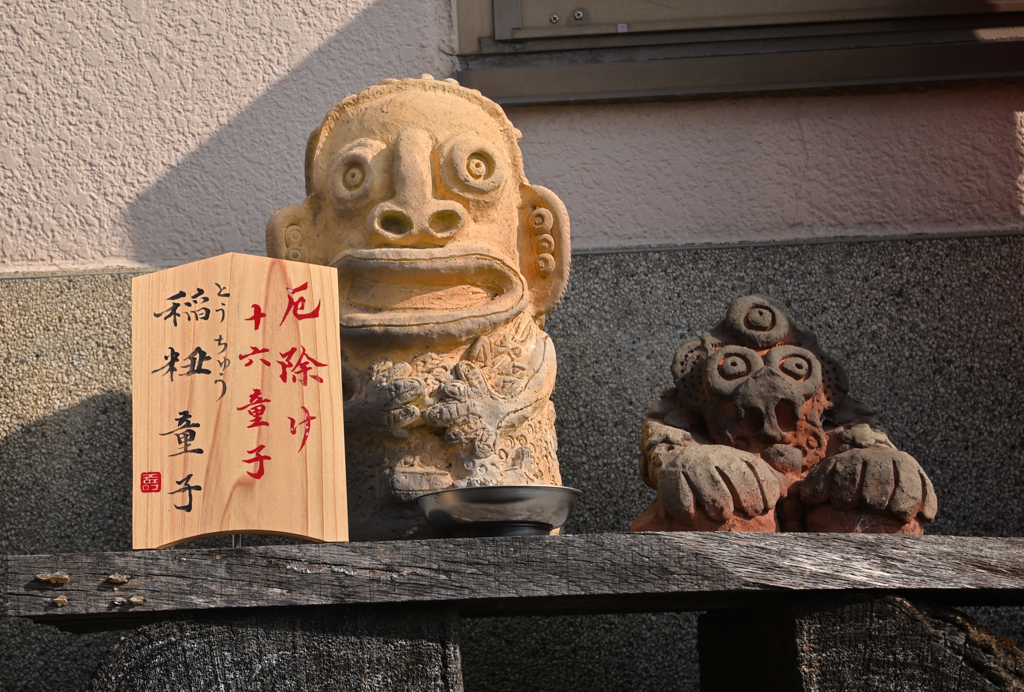 厄除け
十六童子
とうちゅう
稲籾童子